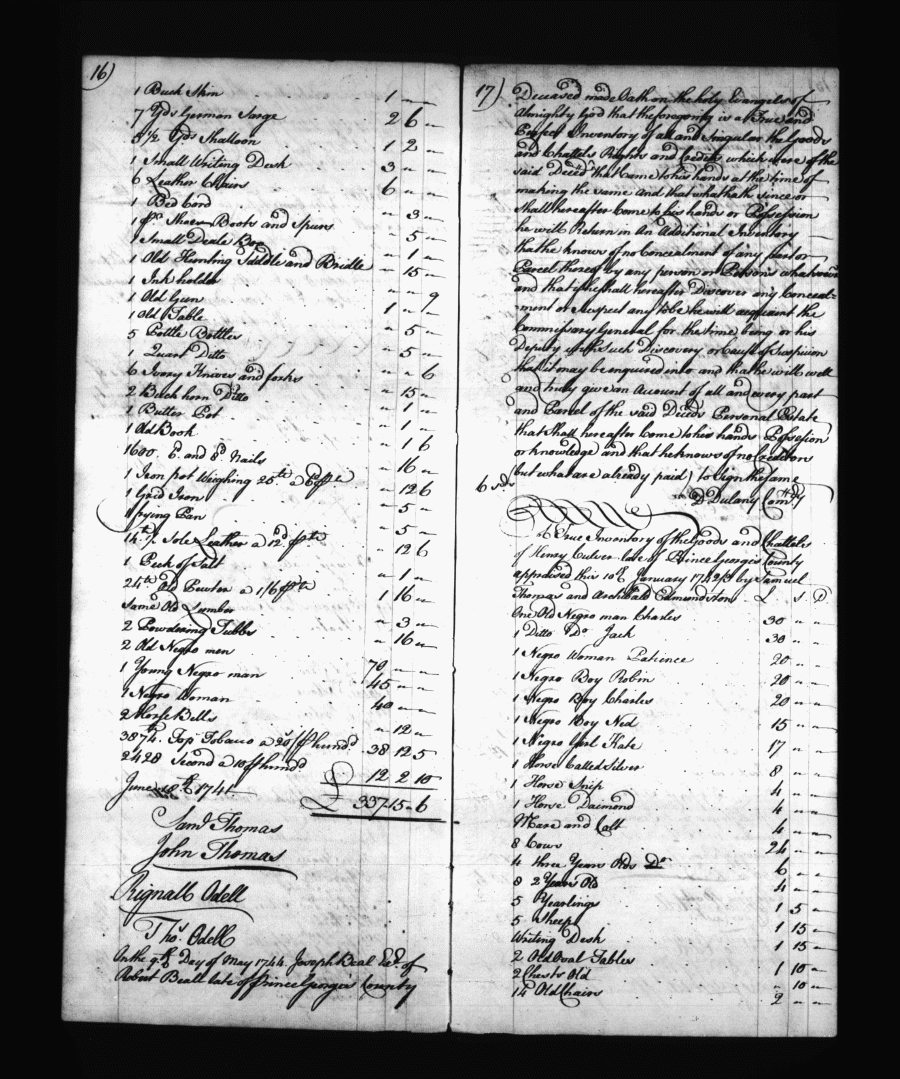 16)
1 Buck Skin 1 " "
7 Yds German Sarge 2 6 "
8 1/2 Yds Shalloon 1 2 "
1 Small Writing Desk 3 " "
6 Leather Chairs 6 " "
1 Bed Cord " 3 "
1 pr. Shoes Boots and Spurs " 5 "
1 Small Deale Box " 1 "
1 Old Hunting Saddle and Bridle " 15 "
1 Ink holder " " 9
1 Old Gun 1 " "
1 Old Table " 5 "
5 Pottle Bottles " 5 "
1 Quart Ditto " " 6
6 Ivory Knives and forks " 15 "
2 Buckhorn Ditto " 1 "
1 Butter Pot " 1 "
1 Old Book " 1 6
1600 6d. and 8d Nails " 16 "
1 Iron pot Weighing 25lb a 6d " 12 6
1 Grid Iron " 5 "
1 frying Pan " 5 "
14 lb Sole Leather a 12d " 12 6
1 Peck of Salt " 1 "
24lb Old Pewter a 1/6 1 16 "
Some Old Lumber " 3 "
2 Powdering Tubbs " 16 "
2 Old Negro men 70 " "
1 Young Negro man 45 " "
1 Negro Woman 40 " "
2 Horse Bells " 12 "
3874. Top Tobacco a 20s hundd 38 12 5
2428 Second a 10 hundd 12 2 10
June 18th 1741 £ 337 15 " 6
Saml Thomas
John Thomas
Rignall Odell
Thos. Odell
On the 9th Day of May 1744 Joseph Beal Exr. of
Robert Beall late of Prince Georges County
17)
Deceased made Oath on the holy Evangels of
Almighty God that the foregoing is a True and
Perfect Inventory of all and Singular the Goods
and Chattels Rights and Credits which were of the
said Deced that Came to his hands at the time of
making the same and that what hath since or
Shall hereafter Come to his hands or Possession
he will Return in An Additional Inventory
that he knows of no Concealment of any part or
Parcel thereof by any person or Persons whatsoever
and that if he shall hereafter Discover any Conceal=
ment or Suspect any to be he will acquaint the
Commissary General for the time being or his
Deputy with such Discovery or Cause of Suspicion
that it may be enquired into and that he will well
and truly give an Account of all and every part
and Parcel of the said Deceds Personal Estate
that Shall hereafter Come to his hands Possession
or knowledge and that he knows of no Creditors
but what are already paid) to Sign the same
D Dulany Comry
A True Inventory of the Goods and Chattels
of Henry Culver late of Prince Georges County
appraised this 10th January 1742/3 by Samuel
Thomas and Archibald Edmondston £ S D
One Old Negro man Charles 30 " "
1 Ditto Do. Jack 30 " "
1 Negro Woman Patience 20 " "
1 Negro Boy Robin 20 " "
1 Negro Boy Charles 20 " "
1 Negro Boy Ned 15 "
1 Negro Girl Kate 17 "
1 Horse Called Silver 8 " "
1 Horse Snip 4 " "
1 Horse Daimond 4 " "
Mare and Colt 4 " "
8 Cows 24 " "
4 three Years Olds Do 6 " "
8 2 Years Old 4 " "
5 Yearlings 1 5 "
5 Sheep 1 15 "
Writing Desk 1 15 "
2 Old Oval Tables 1 10 "
2 Chests Old " 10 "
14 Old Chairs 2 " "